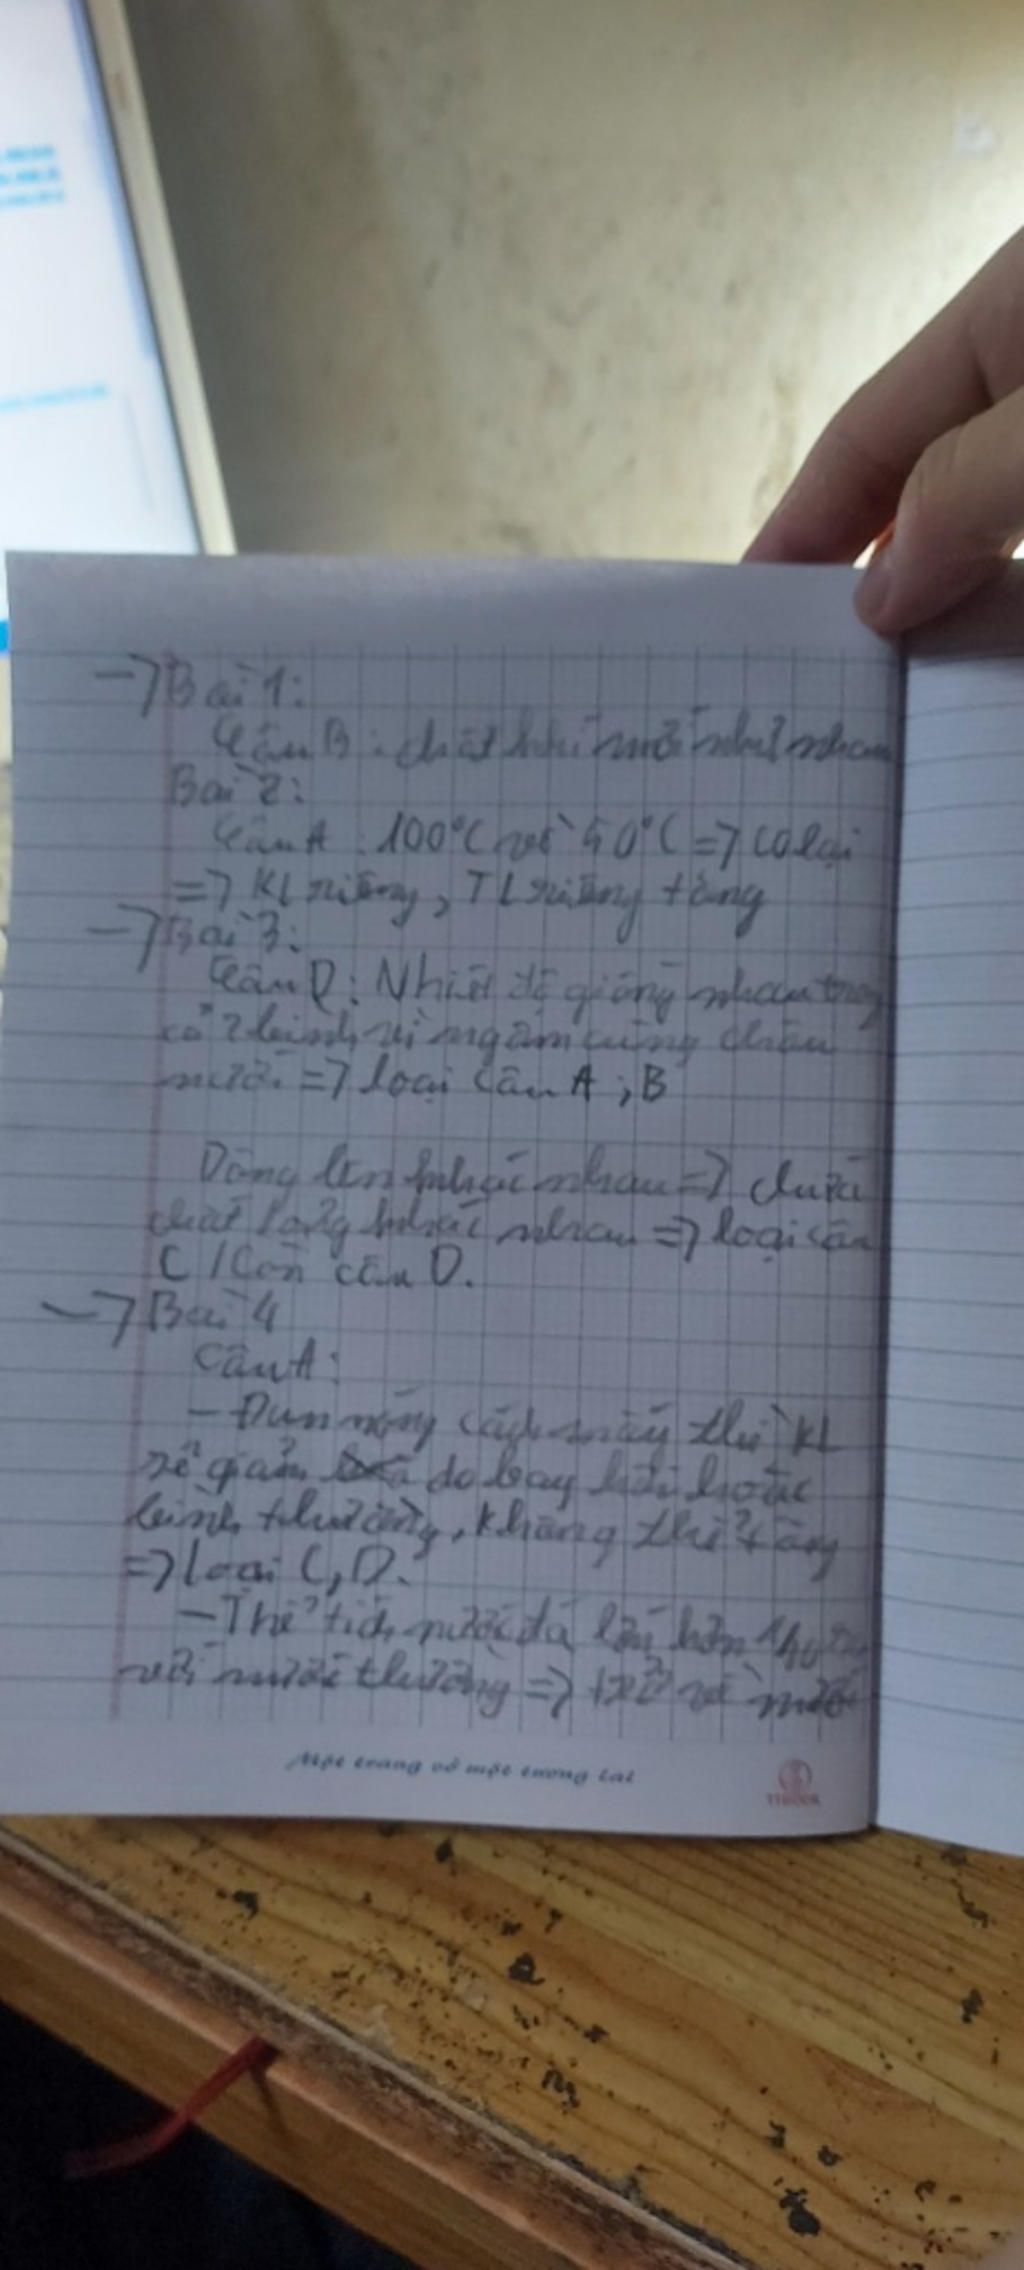 → Bài 1:
Câu B: chất khí mới như nhau
Bài 2:
Câu A: 100°C về 50°C => co lại
=> KL riêng, TL riêng tăng
→ Bài 3:
Câu D: Nhiệt độ giống nhau trong
cả 2 bình vì ngâm cùng chậu
nước => loại câu A; B
Dâng lên khác nhau => chứa
chất lỏng khác nhau => loại câu
C / Còn câu D.
→ Bài 4
Câu A:
- Đun nóng cách mấy thì KL
sẽ giảm do bay hơi hoặc
bình thường, không thể tăng
=> loại C, D.
- Thể tích nước đá lớn hơn
với nước thường => trở về nước
Một trang vở một tương lai